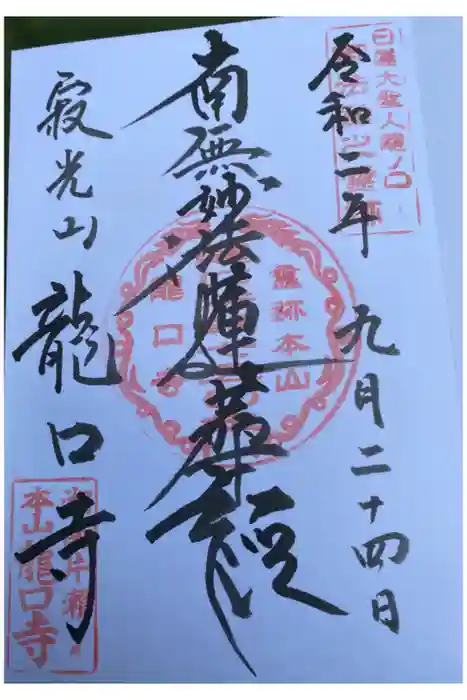 令和二年 九月二十四日
日蓮大聖人龍ノ口
南無妙法蓮華経
本山
龍口寺
寂光山 龍口寺
片瀬
本山龍口寺